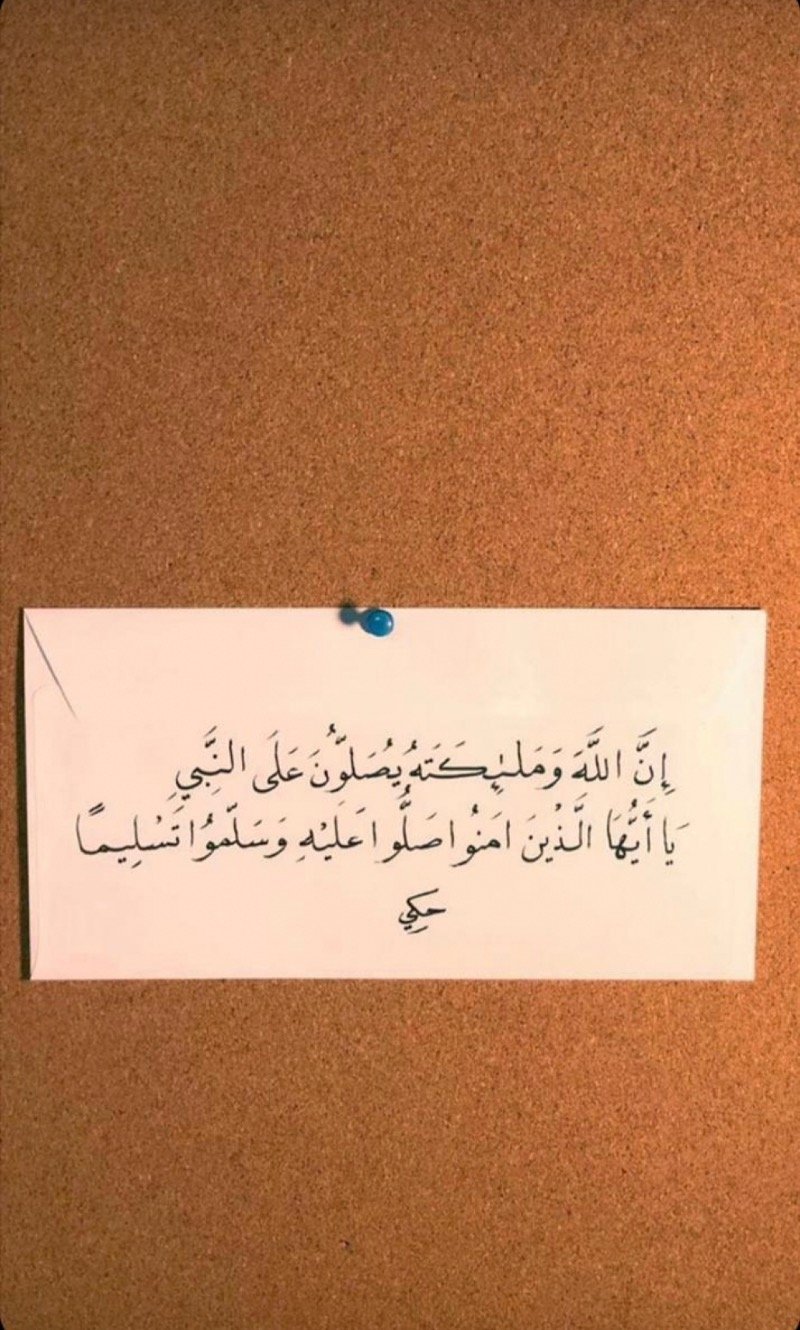 إِنَّ اللَّهَ وَمَلٰئِكَتَهُ يُصَلُّونَ عَلَى النَّبِيِ
يَا أَيُّهَا الَّذِينَ امَنُوا صَلُّوا عَلَيْهِ وَسَلِّمُوا تَسْلِيمًا